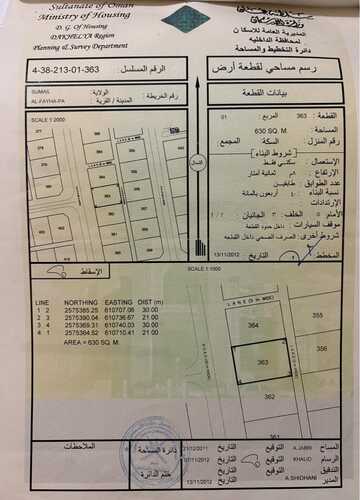 Sultanate of Oman
Ministry of Housing
D. G. Of Housing
DAKHLIYA Region
Planning & Survey Department
المديرية العامة للاسكان
لمحافظة الداخليه
دائرة التخطيط والمساحة
4-38-213-01-363
الرقم المسلسل
رسم مساحي لقطعة أرض
SUMAIL
الولاية:
AL-FAYHA-PA
المدينة / القرية:
رقم الخريطة:
بيانات القطعة
SCALE 1: 2000
القطعة: 363
المربع: 01
المساحة: 630 SQ. M.
رقم المنزل:
السكة:
المجمع:
[شروط البناء]
الاستعمال: سكني فقط
الارتفاع: ٨م ثمانية أمتار
عدد الطوابق: طابقين
نسبة البناء: ٤٠ أربعون بالمائة
الارتدادات
الأمام: ٥ الخلف: ٣ الجانبان: ٢ / ٢
موقف السيارات: داخل حدود القطعة
شروط أخرى: الصرف الصحي داخل القطعه
المخطط
التاريخ
13/11/2012
الشمال
363
الإسقاط
SCALE 1:1000
LINE NORTHING EASTING DIST (m)
1 2 2575385.25 610707.06 30.00
2 3 2575390.04 610736.67 21.00
3 4 2575369.31 610740.03 30.00
4 1 2575364.52 610710.41 21.00
AREA = 630 SQ. M.
364
355
363
356
362
361
الملاحظات
دائرة المساحة
ختم الدائرة
المساح A.JABRI التوقيع التاريخ
الرسام KHALID التوقيع التاريخ
التدقيق التوقيع التاريخ 13/11/2012
المدير A.SHIDHANI